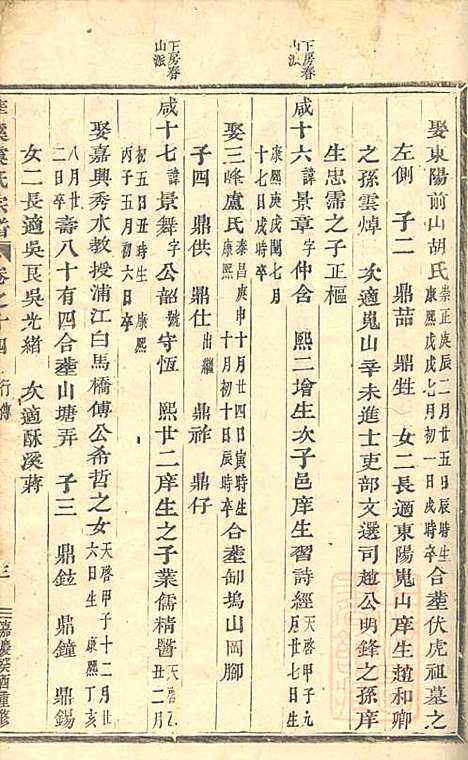 下房春山派
下房春山派
娶東陽前山胡氏崇正庚辰二月廿五日辰時生康熙戊戌七月初一日戌時卒合塟伏虎祖墓之
左側 子二 鼎喆 鼎甡 女二長適東陽嵬山庠生趙和卿
之孫雲焯 次適嵬山辛未進士吏部文選司趙公明鋒之孫庠
生忠需之子正樞
咸十六諱景章字仲含 熙二增生次子邑庠生習詩經天啓甲子九月廿七日戌時生
康熙庚戌閏七月十七日戌時卒
娶三峰盧氏泰昌庚申十月廿四日寅時生康熙 十月初十日辰時卒合塟卸塢山岡腳
子四 鼎供 鼎仕出繼 鼎祚 鼎仔
咸十七諱景舞字公韶號守恆 熙廿二庠生之子業儒精醫天啓乙丑二月
初五日丑時生 康熙丙子五月初六日卒
娶嘉興秀水教授浦江白馬橋傅公希哲之女天啓甲子十二月廿六日生 康熙丁亥
八月廿二日卒壽八十有四合塟山塘弄 子三 鼎鉉 鼎鐘 鼎錫
女二長適吳艮吳光緒 次適酥溪蔣
氏宗譜 卷之十四 行傳 三 嘉慶癸酉重修